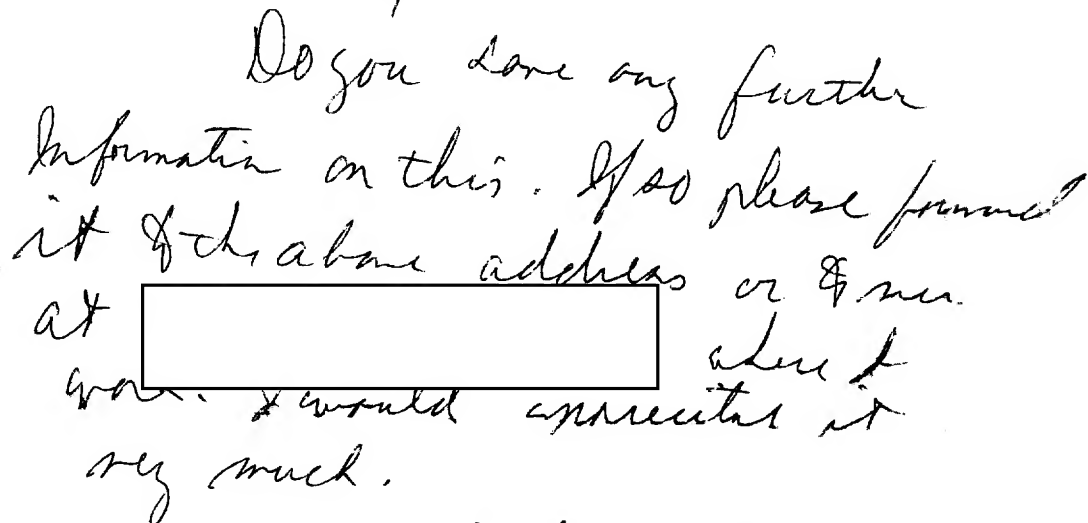 Do you have any further
Information on this. If so please forward
it to the above address or to me
at where I
work. I would appreciate it
very much.